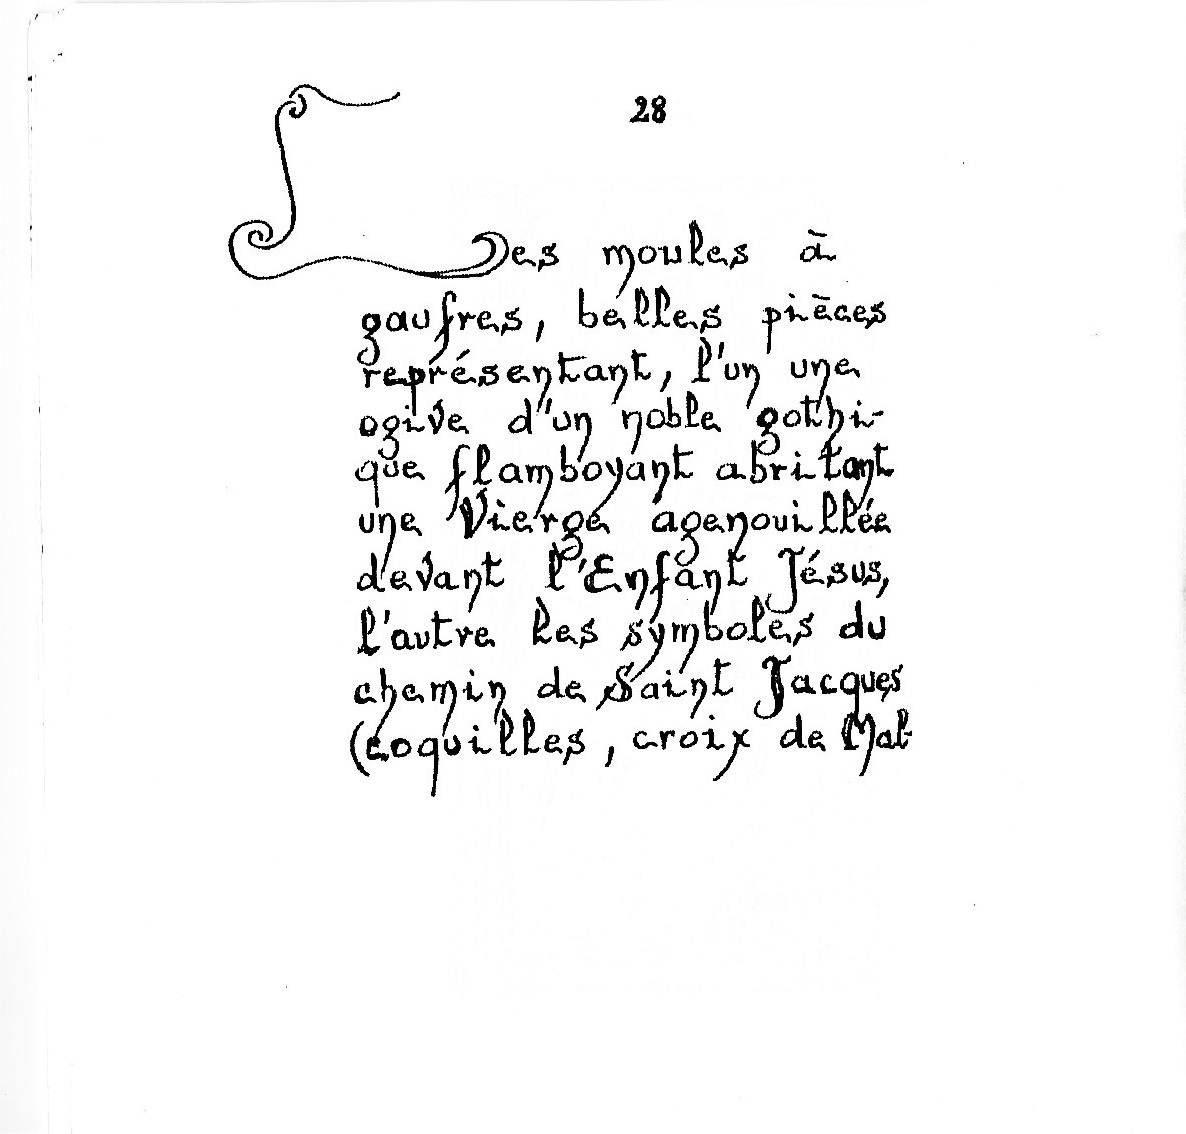 28
Des moules à
gaufres, belles pièces
représentant, l'un une
ogive d'un noble gothi-
que flamboyant abritant
une Vierge agenouillée
devant l'Enfant Jésus,
l'autre les symboles du
chemin de Saint Jacques
(coquilles, croix de Mal-